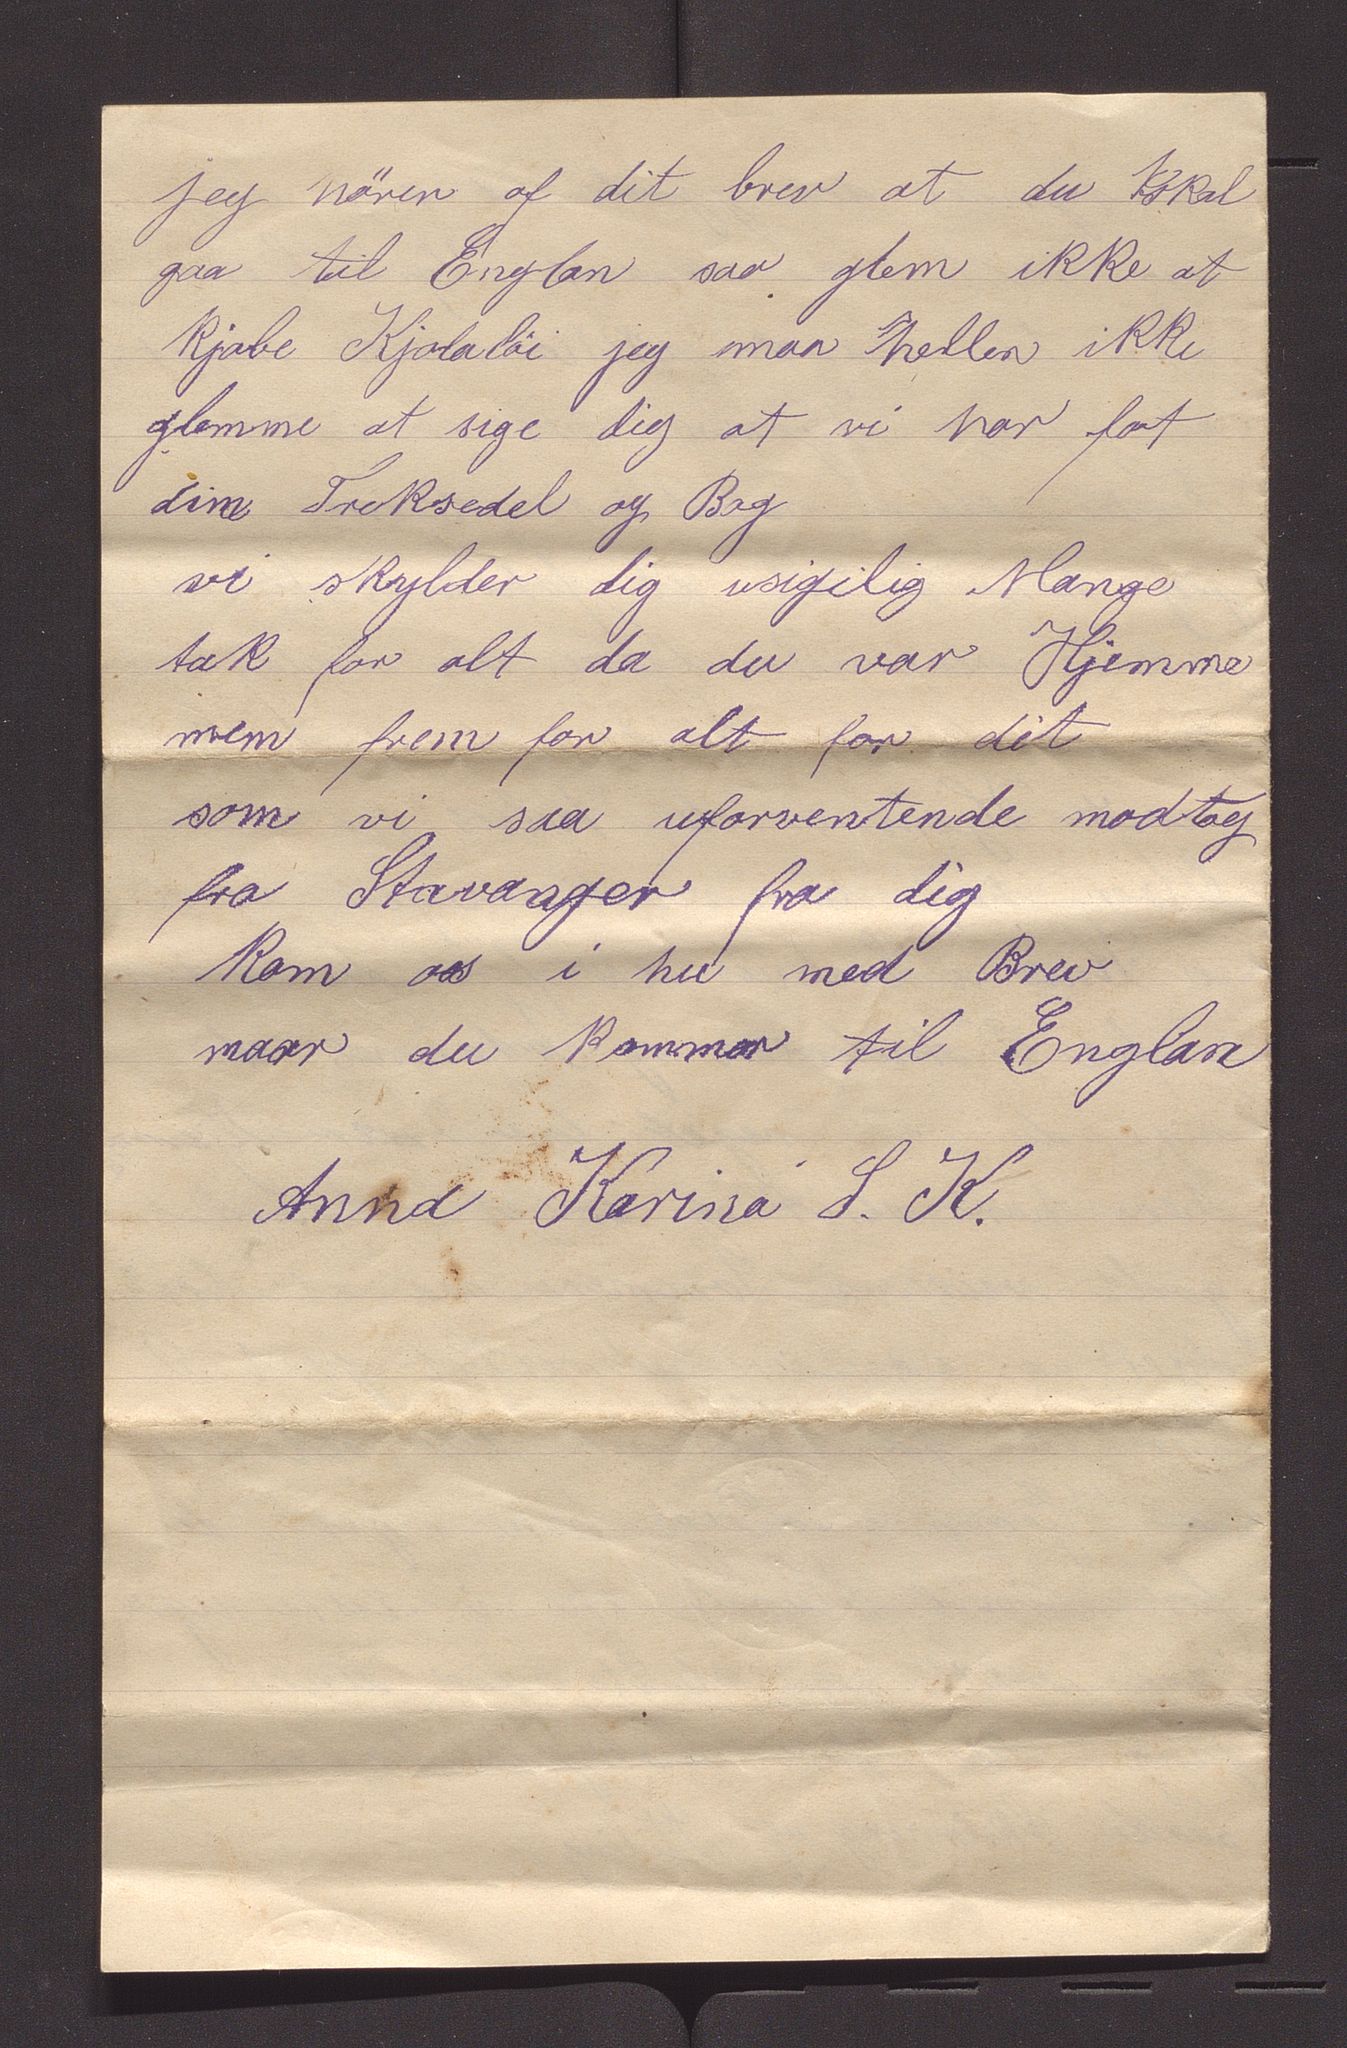 jeg hören af dit brev at du skal
gaa til Englan saa glem ikke at
kjøbe Kjolatöi jeg maa heller ikke
glemme at sige dig at vi har faat
din Treksedel og Bog
vi skylder dig usigilig Mange
tak for alt da du var Hjemme
men frem for alt for dit
som vi saa uforventende modtog
fra Stavanger fra dig
kom os i hu med Brev
naar du kommer til Englan
Anna Karina S. K.